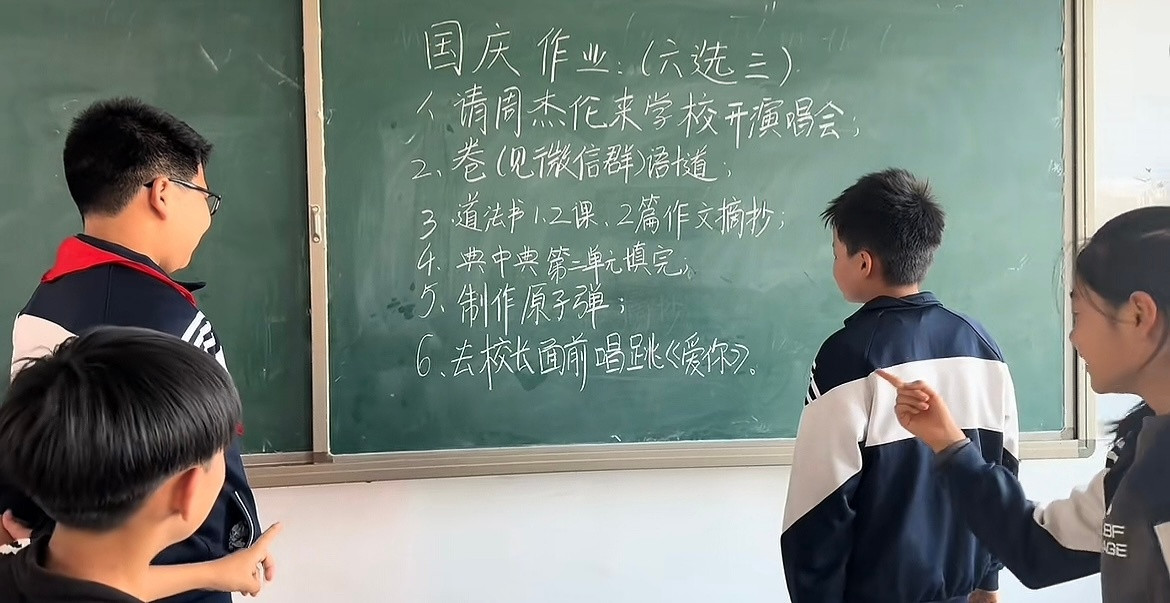 国庆作业:(六选三)
1、请周杰伦来学校开演唱会;
2、卷(见微信群)语+道;
3、道法书1.2课、2篇作文摘抄;
4、典中典第二单元填完;
5、制作原子弹;
6、去校长面前唱跳《爱你》。